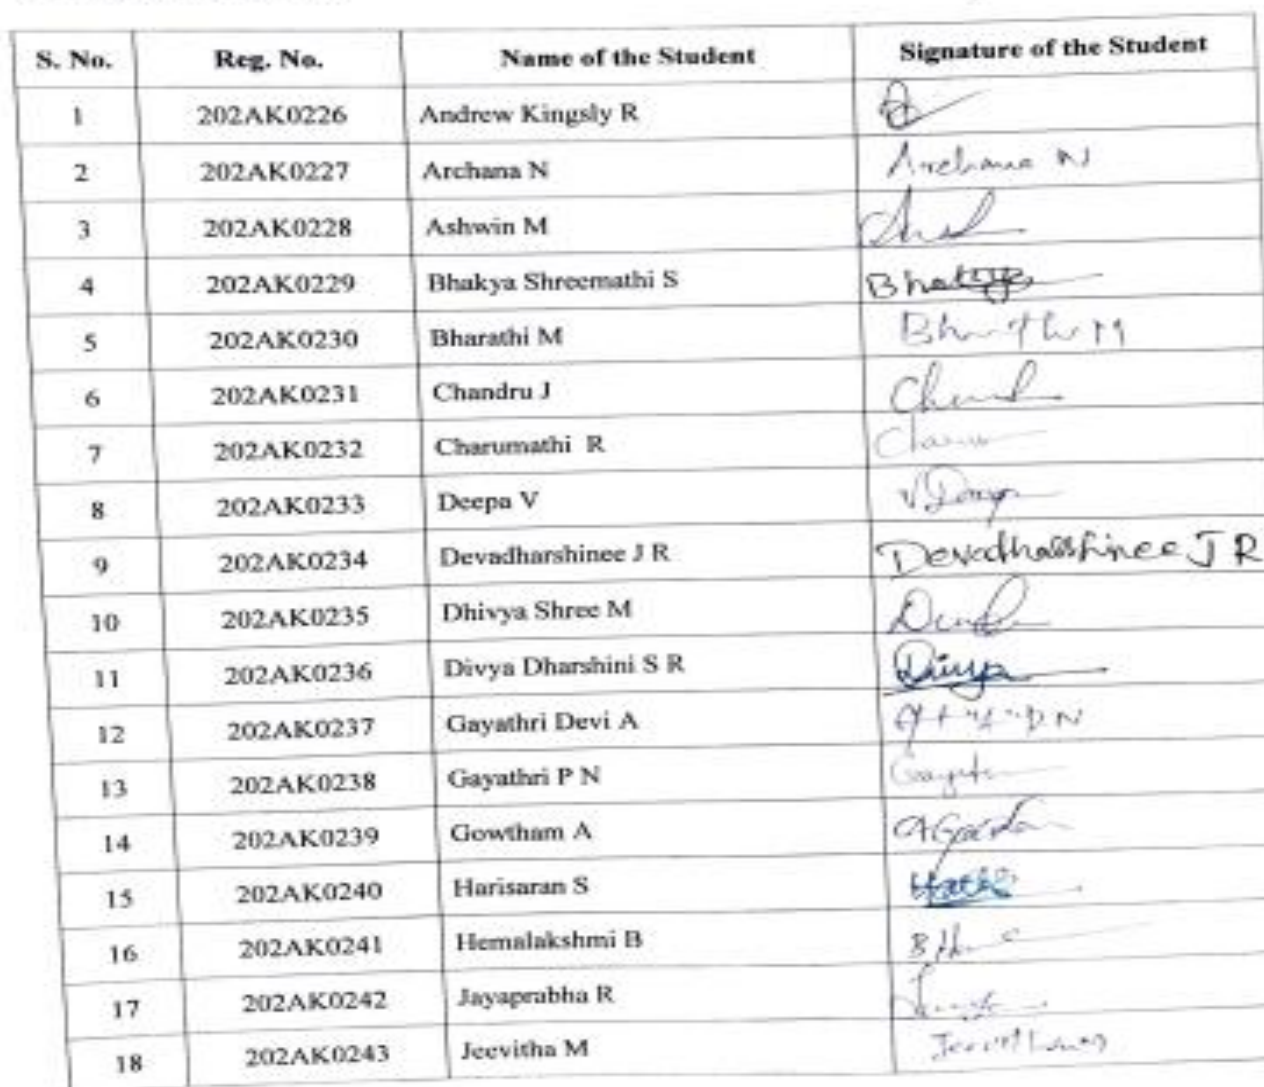 S. No. Reg. No. Name of the Student Signature of the Student
1 202AK0226 Andrew Kingsly R
2 202AK0227 Archana N Archana N
3 202AK0228 Ashwin M
4 202AK0229 Bhakya Shreemathi S
5 202AK0230 Bharathi M
6 202AK0231 Chandru J
7 202AK0232 Charumathi R
8 202AK0233 Deepa V
9 202AK0234 Devadharshinee J R Devadharshinee J R
10 202AK0235 Dhivya Shree M
11 202AK0236 Divya Dharshini S R Divya
12 202AK0237 Gayathri Devi A
13 202AK0238 Gayathri P N
14 202AK0239 Gowtham A
15 202AK0240 Harisaran S
16 202AK0241 Hemalakshmi B
17 202AK0242 Jayaprabha R
18 202AK0243 Jeevitha M